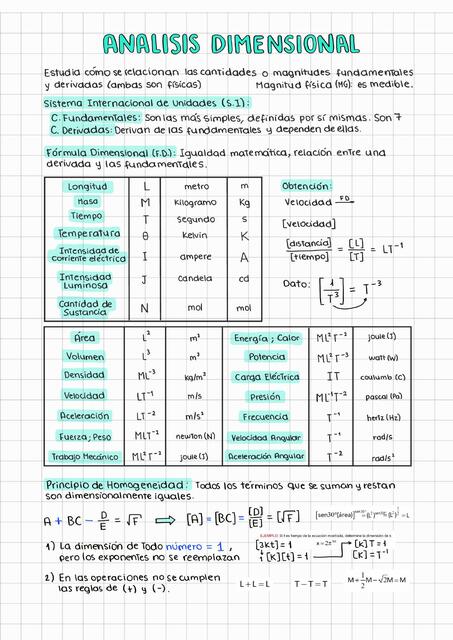 ANALISIS DIMENSIONAL
Estudia cómo se relacionan las cantidades o magnitudes fundamentales
y derivadas (ambas son físicas) Magnitud física (MG): es medible.
Sistema Internacional de Unidades (S.I):
C. Fundamentales: Son las más simples, definidas por sí mismas. Son 7
C. Derivadas: Derivan de las fundamentales y dependen de ellas.
Fórmula Dimensional (F.D.): Igualdad matemática, relación entre una
derivada y las fundamentales.
Longitud L metro m
Masa M Kilogramo Kg
Tiempo T segundo s
Temperatura θ Kelvin K
Intensidad de
corriente eléctrica I ampere A
Intensidad
Luminosa J candela cd
Cantidad de
Sustancia N mol mol
Obtención:
Velocidad FD
[velocidad]
[distancia]/[tiempo] = [L]/[T] = LT⁻¹
Dato: [1/T³] = T⁻³
Área L² m² Energía; Calor ML²T⁻² joule (J)
Volumen L³ m³ Potencia ML²T⁻³ watt (W)
Densidad ML⁻³ kg/m³ Carga Eléctrica IT coulumb (C)
Velocidad LT⁻¹ m/s Presión ML⁻¹T⁻² pascal (Pa)
Aceleración LT⁻² m/s² Frecuencia T⁻¹ hertz (Hz)
Fuerza; Peso MLT⁻² newton (N) Velocidad Angular T⁻¹ rad/s
Trabajo Mecánico ML²T⁻² joule (J) Aceleración Angular T⁻² rad/s²
Principio de Homogeneidad: Todos los términos que se suman y restan
son dimensionalmente iguales.
A + BC - D/E = √F ⇒ [A] = [BC] = [D]/[E] = [√F]
1) La dimensión de Todo número = 1,
pero los exponentes no se reemplazan
[3kt] = 1 [K]T = 1
[K][t] = 1 [K] = T⁻¹
2) En las operaciones no se cumplen
las reglas de (+) y (-).
L + L = L T - T = T M + 1/2 M - √2M = M